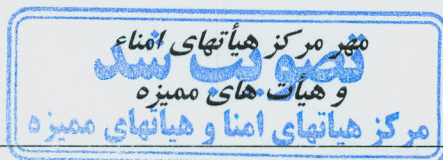 مهر مرکز هیأتهای امناء
تصویب شد
و هیأت های ممیزه
مرکز هیاتهای امنا و هیاتهای ممیزه